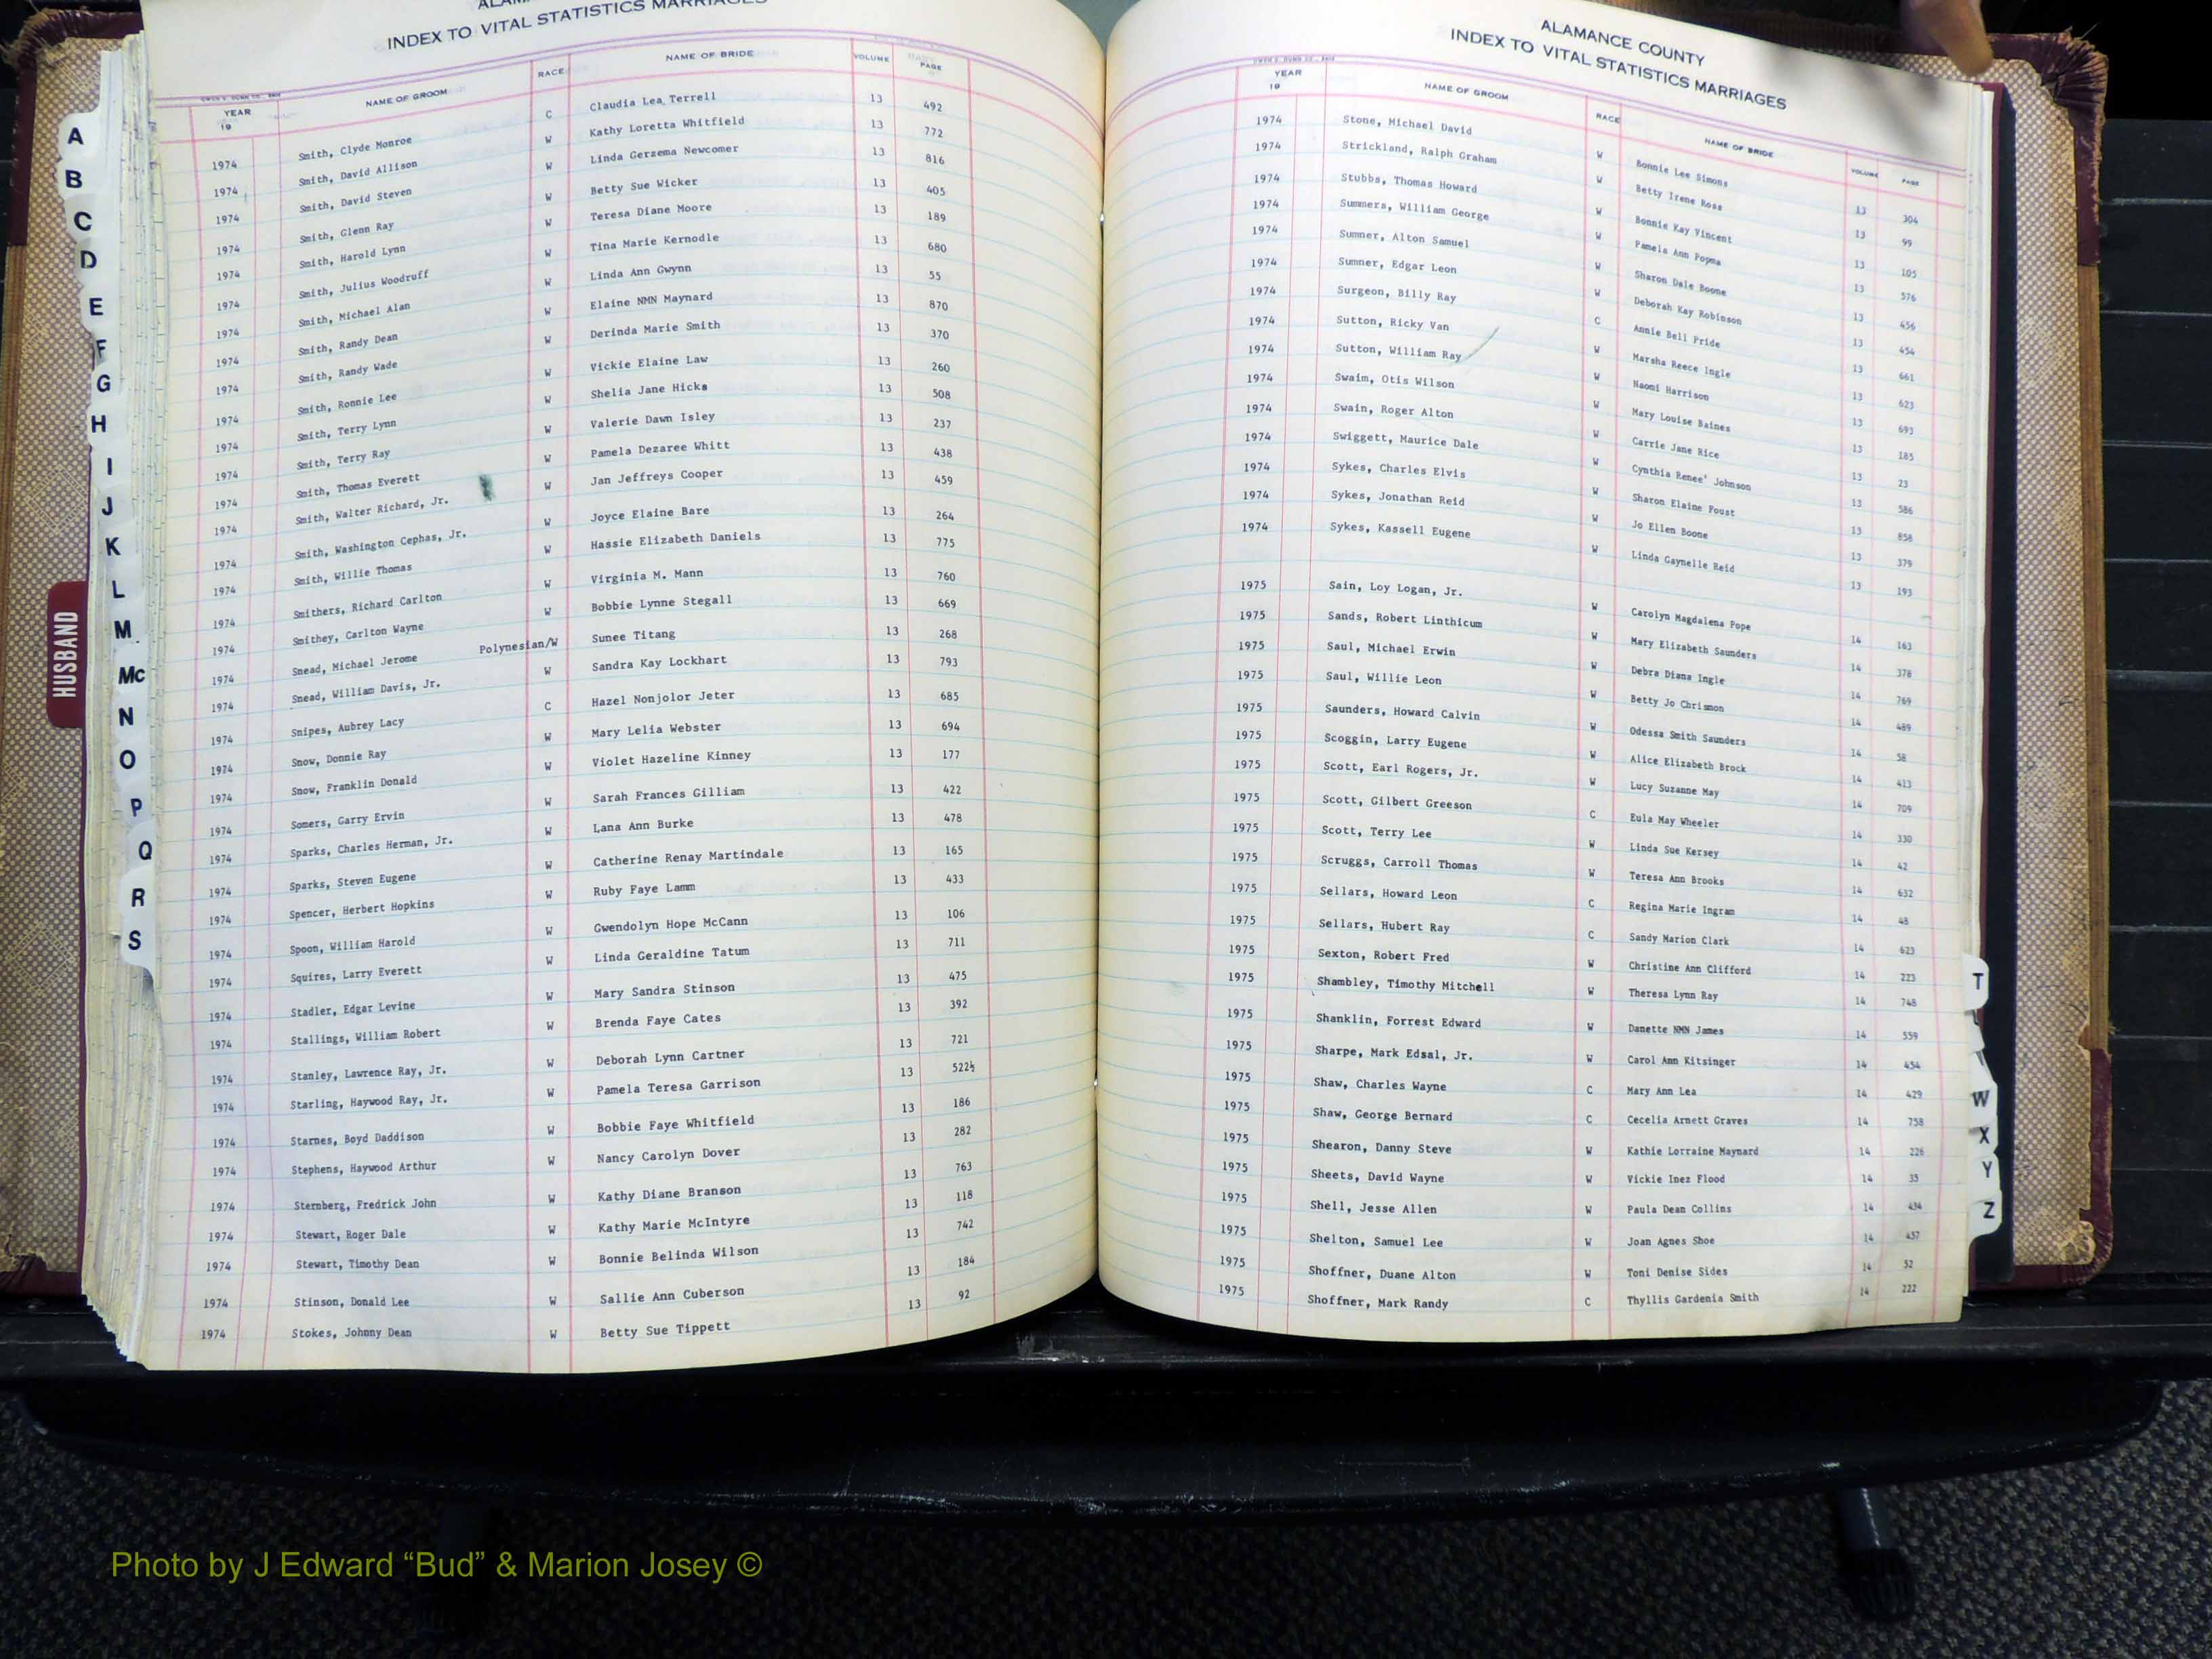 INDEX TO VITAL STATISTICS MARRIAGES
YEAR 19 NAME OF GROOM RACE NAME OF BRIDE VOLUME PAGE
1974 Smith, Clyde Monroe C Claudia Lea Terrell 13 492
1974 Smith, David Allison W Kathy Loretta Whitfield 13 772
1974 Smith, David Steven W Linda Gerzema Newcomer 13 816
1974 Smith, Glenn Ray W Betty Sue Wicker 13 405
1974 Smith, Harold Lynn W Teresa Diane Moore 13 189
1974 Smith, Julius Woodruff W Tina Marie Kernodle 13 680
1974 Smith, Michael Alan W Linda Ann Gwynn 13 55
1974 Smith, Randy Dean W Elaine NMN Maynard 13 870
1974 Smith, Randy Wade W Derinda Marie Smith 13 370
1974 Smith, Ronnie Lee W Vickie Elaine Law 13 260
1974 Smith, Terry Lynn W Shelia Jane Hicks 13 508
1974 Smith, Terry Ray W Valerie Dawn Isley 13 237
1974 Smith, Thomas Everett W Pamela Dezaree Whitt 13 438
1974 Smith, Walter Richard, Jr. W Jan Jeffreys Cooper 13 459
1974 Smith, Washington Cephas, Jr. W Joyce Elaine Bare 13 264
1974 Smith, Willie Thomas W Hassie Elizabeth Daniels 13 775
1974 Smithers, Richard Carlton W Virginia M. Mann 13 760
1974 Smithey, Carlton Wayne W Bobbie Lynne Stegall 13 669
1974 Snead, Michael Jerome Polynesian/W Sunee Titang 13 268
1974 Snead, William Davis, Jr. W Sandra Kay Lockhart 13 793
1974 Snipes, Aubrey Lacy C Hazel Nonjolor Jeter 13 685
1974 Snow, Donnie Ray W Mary Lelia Webster 13 694
1974 Snow, Franklin Donald W Violet Hazeline Kinney 13 177
1974 Somers, Garry Ervin W Sarah Frances Gilliam 13 422
1974 Sparks, Charles Herman, Jr. W Lana Ann Burke 13 478
1974 Sparks, Steven Eugene W Catherine Renay Martindale 13 165
1974 Spencer, Herbert Hopkins W Ruby Faye Lamm 13 433
1974 Spoon, William Harold W Gwendolyn Hope McCann 13 106
1974 Squires, Larry Everett W Linda Geraldine Tatum 13 711
1974 Stadler, Edgar Levine W Mary Sandra Stinson 13 475
1974 Stallings, William Robert W Brenda Faye Cates 13 392
1974 Stanley, Lawrence Ray, Jr. W Deborah Lynn Cartner 13 721
1974 Starling, Haywood Ray, Jr. W Pamela Teresa Garrison 13 522½
1974 Starnes, Boyd Daddison W Bobbie Faye Whitfield 13 186
1974 Stephens, Haywood Arthur W Nancy Carolyn Dover 13 282
1974 Sternberg, Fredrick John W Kathy Diane Branson 13 763
1974 Stewart, Roger Dale W Kathy Marie McIntyre 13 118
1974 Stewart, Timothy Dean W Bonnie Belinda Wilson 13 742
1974 Stinson, Donald Lee W Sallie Ann Cuberson 13 184
1974 Stokes, Johnny Dean W Betty Sue Tippett 13 92
A
B
C
D
E
F
G
H
I
J
K
L
M
Mc
N
O
P
Q
R
S
HUSBAND
ALAMANCE COUNTY
INDEX TO VITAL STATISTICS MARRIAGES
YEAR 19 NAME OF GROOM RACE NAME OF BRIDE VOLUME PAGE
1974 Stone, Michael David W Bonnie Lee Simons 13 304
1974 Strickland, Ralph Graham W Betty Irene Ross 13 99
1974 Stubbs, Thomas Howard W Bonnie Kay Vincent 13 105
1974 Summers, William George W Pamela Ann Popma 13 576
1974 Sumner, Alton Samuel W Sharon Dale Boone 13 456
1974 Sumner, Edgar Leon W Deborah Kay Robinson 13 454
1974 Surgeon, Billy Ray C Annie Bell Pride 13 661
1974 Sutton, Ricky Van W Marsha Reece Ingle 13 623
1974 Sutton, William Ray W Naomi Harrison 13 693
1974 Swaim, Otis Wilson W Mary Louise Baines 13 185
1974 Swain, Roger Alton W Carrie Jane Rice 13 23
1974 Swiggett, Maurice Dale W Cynthia Renee' Johnson 13 586
1974 Sykes, Charles Elvis W Sharon Elaine Foust 13 858
1974 Sykes, Jonathan Reid W Jo Ellen Boone 13 379
1974 Sykes, Kassell Eugene W Linda Gaynelle Reid 13 193
1975 Sain, Loy Logan, Jr. W Carolyn Magdalena Pope 14 163
1975 Sands, Robert Linthicum W Mary Elizabeth Saunders 14 378
1975 Saul, Michael Erwin W Debra Diana Ingle 14 769
1975 Saul, Willie Leon W Betty Jo Chrismon 14 489
1975 Saunders, Howard Calvin W Odessa Smith Saunders 14 58
1975 Scoggin, Larry Eugene W Alice Elizabeth Brock 14 413
1975 Scott, Earl Rogers, Jr. W Lucy Suzanne May 14 709
1975 Scott, Gilbert Greeson C Eula May Wheeler 14 330
1975 Scott, Terry Lee W Linda Sue Kersey 14 42
1975 Scruggs, Carroll Thomas W Teresa Ann Brooks 14 632
1975 Sellars, Howard Leon C Regina Marie Ingram 14 48
1975 Sellars, Hubert Ray C Sandy Marion Clark 14 623
1975 Sexton, Robert Fred W Christine Ann Clifford 14 223
1975 Shambley, Timothy Mitchell W Theresa Lynn Ray 14 748
1975 Shanklin, Forrest Edward W Danette NMN James 14 559
1975 Sharpe, Mark Edsal, Jr. W Carol Ann Kitsinger 14 454
1975 Shaw, Charles Wayne C Mary Ann Lea 14 429
1975 Shaw, George Bernard C Cecelia Arnett Graves 14 758
1975 Shearon, Danny Steve W Kathie Lorraine Maynard 14 226
1975 Sheets, David Wayne W Vickie Inez Flood 14 35
1975 Shell, Jesse Allen W Paula Dean Collins 14 434
1975 Shelton, Samuel Lee W Joan Agnes Shoe 14 437
1975 Shoffner, Duane Alton W Toni Denise Sides 14 52
1975 Shoffner, Mark Randy C Thyllis Gardenia Smith 14 222
T
W
X
Y
Z
Photo by J Edward “Bud” & Marion Josey ©